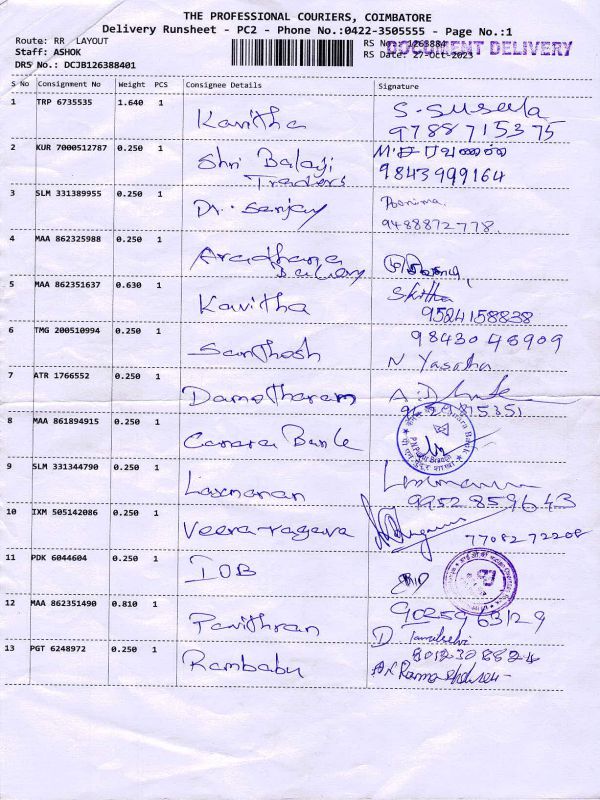 THE PROFESSIONAL COURIERS, COIMBATORE
Delivery Runsheet - PC2 - Phone No.:0422-3505555 - Page No.:1
Route: RR LAYOUT
RS No.: 1263884
DOCUMENT DELIVERY
Staff: ASHOK
RS Date: 27-Oct-2023
DRS No.: DCJB126388401
S No Consignment No Weight PCS Consignee Details Signature
1 TRP 6735535 1.640 1 Kavitha S. Suseela
9788715375
2 KUR 7000512787 0.250 1 Shri Balaji
Traders
9843999164
3 SLM 331389955 0.250 1 Dr. Sanjay
9488872778.
4 MAA 862325988 0.250 1 Aradhana
5 MAA 862351637 0.630 1 Kavitha
9524158838
6 TMG 200510994 0.250 1 Santhosh 9843046909
N
7 ATR 1766552 0.250 1 Damotharam
9629815351
8 MAA 861894915 0.250 1 Canara Bank
9 SLM 331344790 0.250 1 Laxmanan
9952859643
10 IXM 505142086 0.250 1 Veera-ragava
7708272208
11 PDK 6044604 0.250 1 IOB
12 MAA 862351490 0.810 1 Pavithran 9025963129
D
13 PGT 6248972 0.250 1 Rambabu